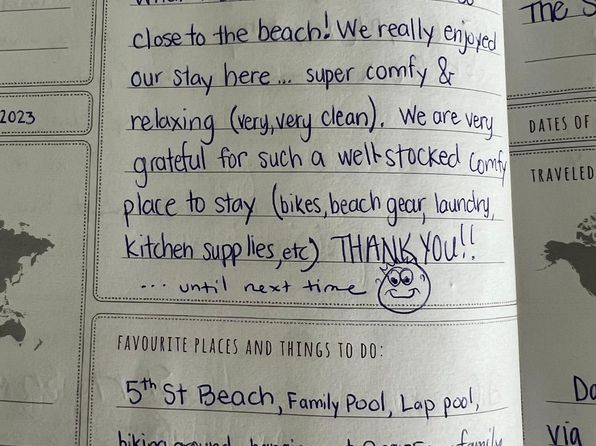 close to the beach! We really enjoyed
our stay here... super comfy &
relaxing (very, very clean). We are very
grateful for such a well-stocked comfy
place to stay (bikes, beach gear, laundry,
kitchen supplies, etc) THANK YOU!!
... until next time
FAVOURITE PLACES AND THINGS TO DO:
5th St Beach, Family Pool, Lap pool,
biking around
family
2023
The S
DATES OF
TRAVELED
Do
via